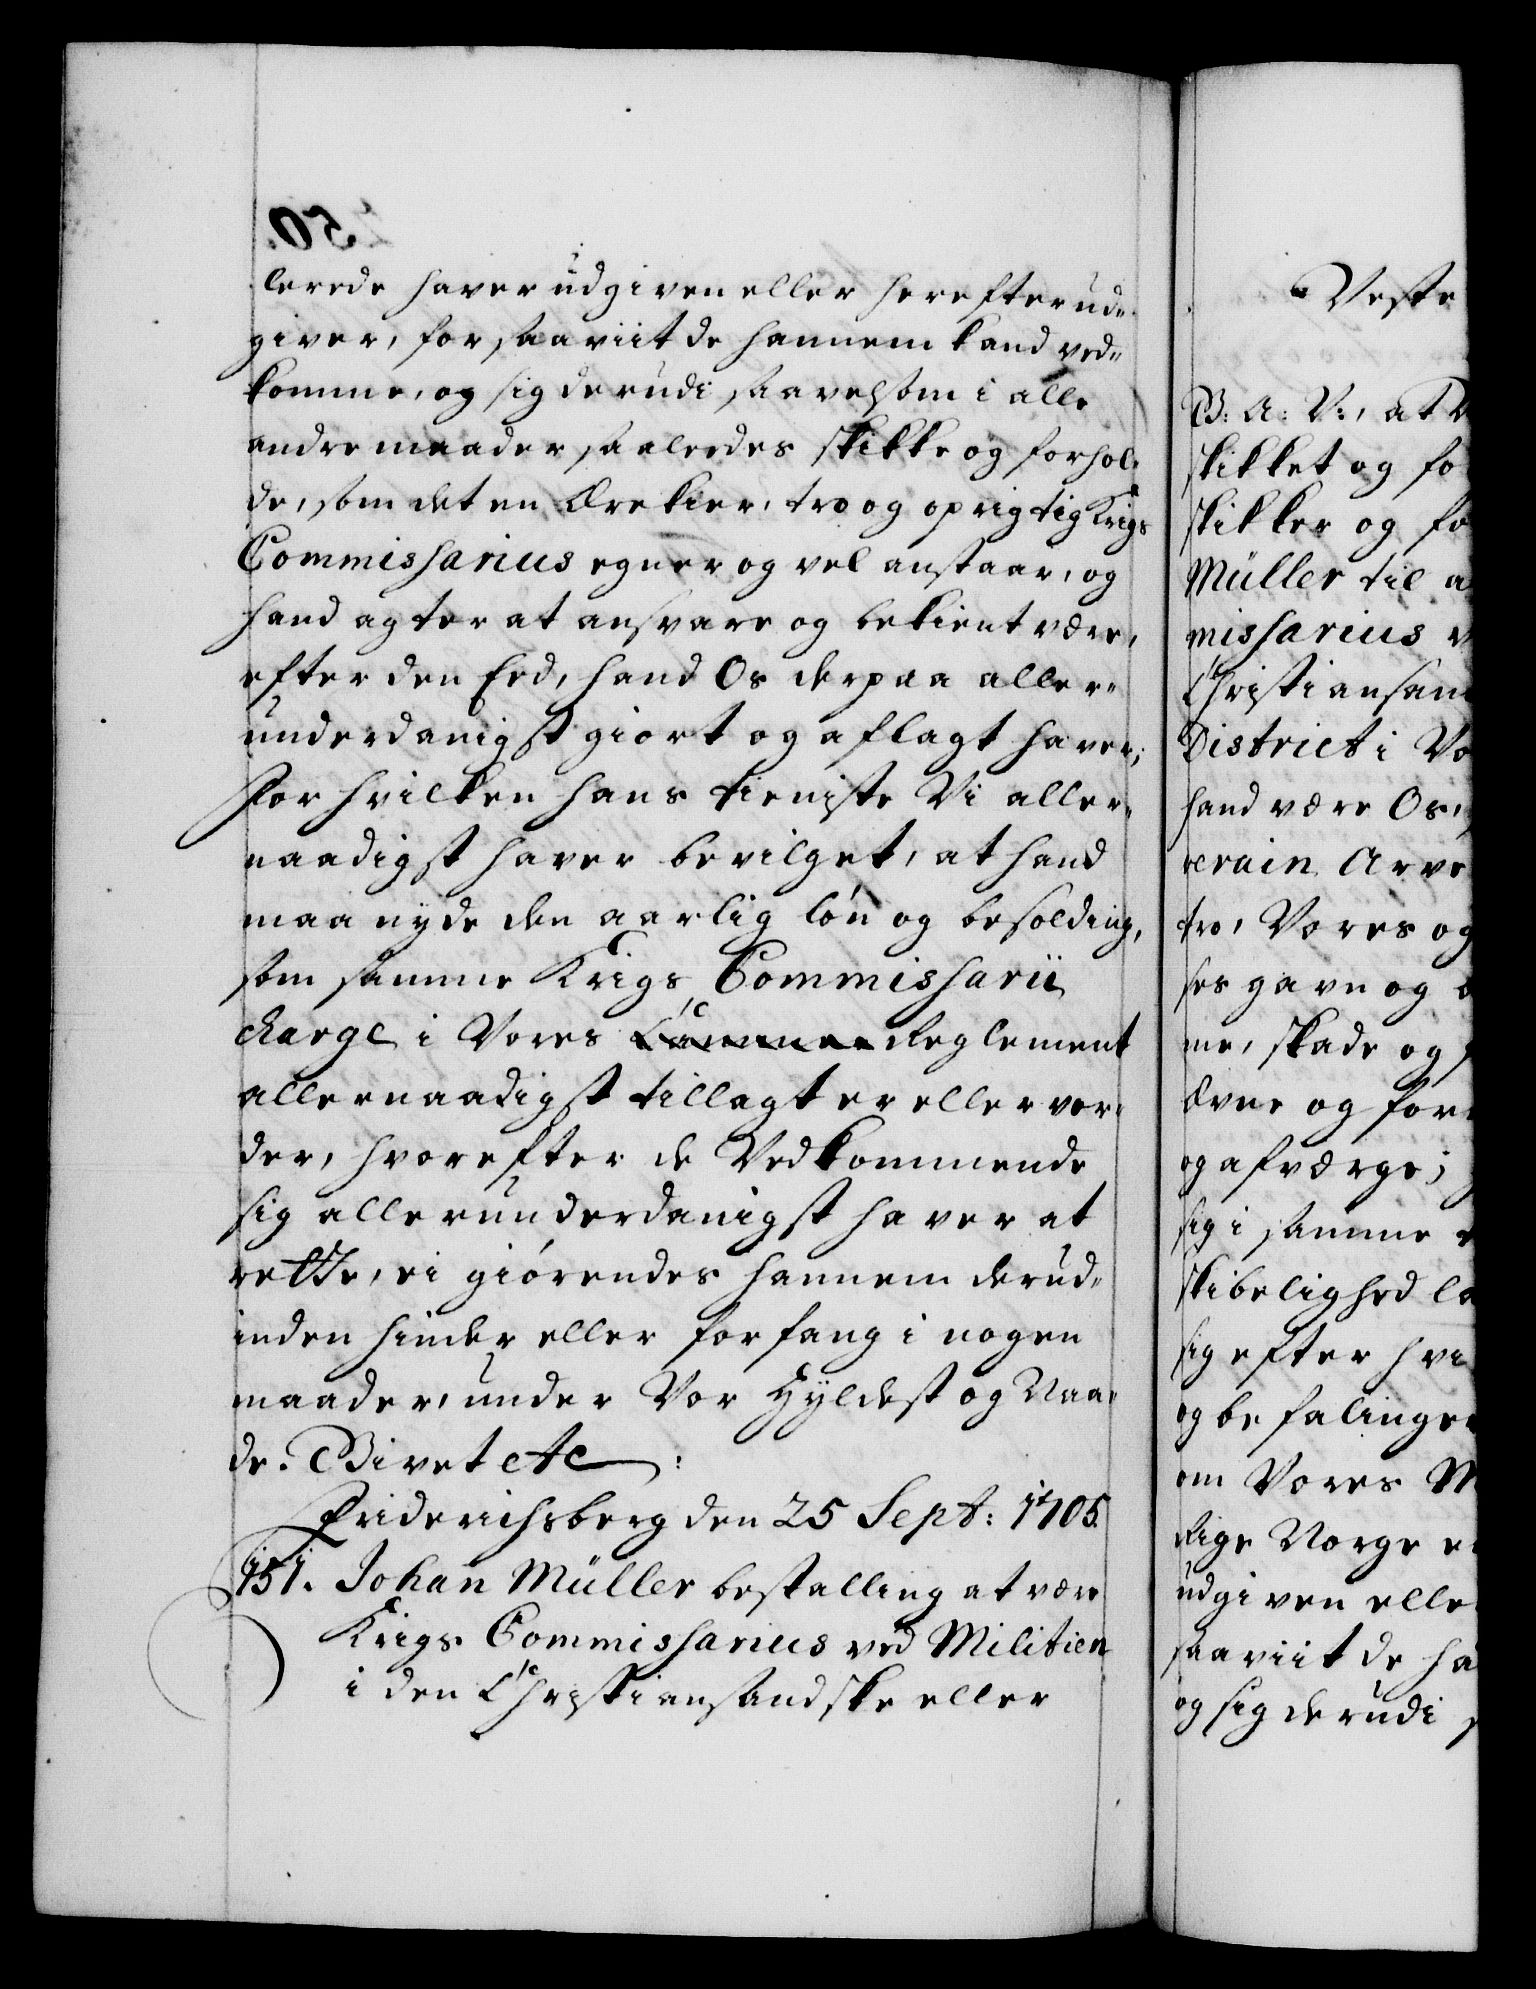 lerede haver udgiven eller herefter ud-
giver, forsaaviit de hannem kand ved-
komme, og sig derudi saavelsom i alle
andre maader saaledes skikke og forhol-
de, som det en Ærekier, tro og oprigtig Krigs
Commissarius egner og vel anstaar, og
hand agter at ansvare og bekient være,
efter den Eed, hand Os derpaa aller-
underdanigst giort og aflagt haver;
For hvilken hans tieniste Vi aller-
naadigst haver bevilget, at hand
maa nyde den aarlig lón og besolding,
som samme Krigs Commissarii
charge i Vores Reglement
allernaadigst tillagt er eller vor-
der, hvorefter de Vedkommende
sig allerunderdanigst haver at
rette, ei giórendes hannem derud-
inden hinder eller forfang i nogen
maader, under Vor Hyldest og Naa-
de. Givet etc:
Friderichsberg den 25 Sept: 1705.
151. Johan Müller bestalling at være
Krigs Commissarius ved Militien
i den Christiansandske eller
Veste
G: A: V:, at
skikket og fo
skikker og fo
Müller til a
missarius v
Christiansan
District i Vo
hand være Os,
verain Arve
tro, Vores og
ses gavn og
me, skade og
ævne og for
og afværge;
sig i samme
skibelighed la
sig efter hvi
og befalinger
om Vores M
Rige Norge
udgiven elle
saaviit de ha
og sig derudi